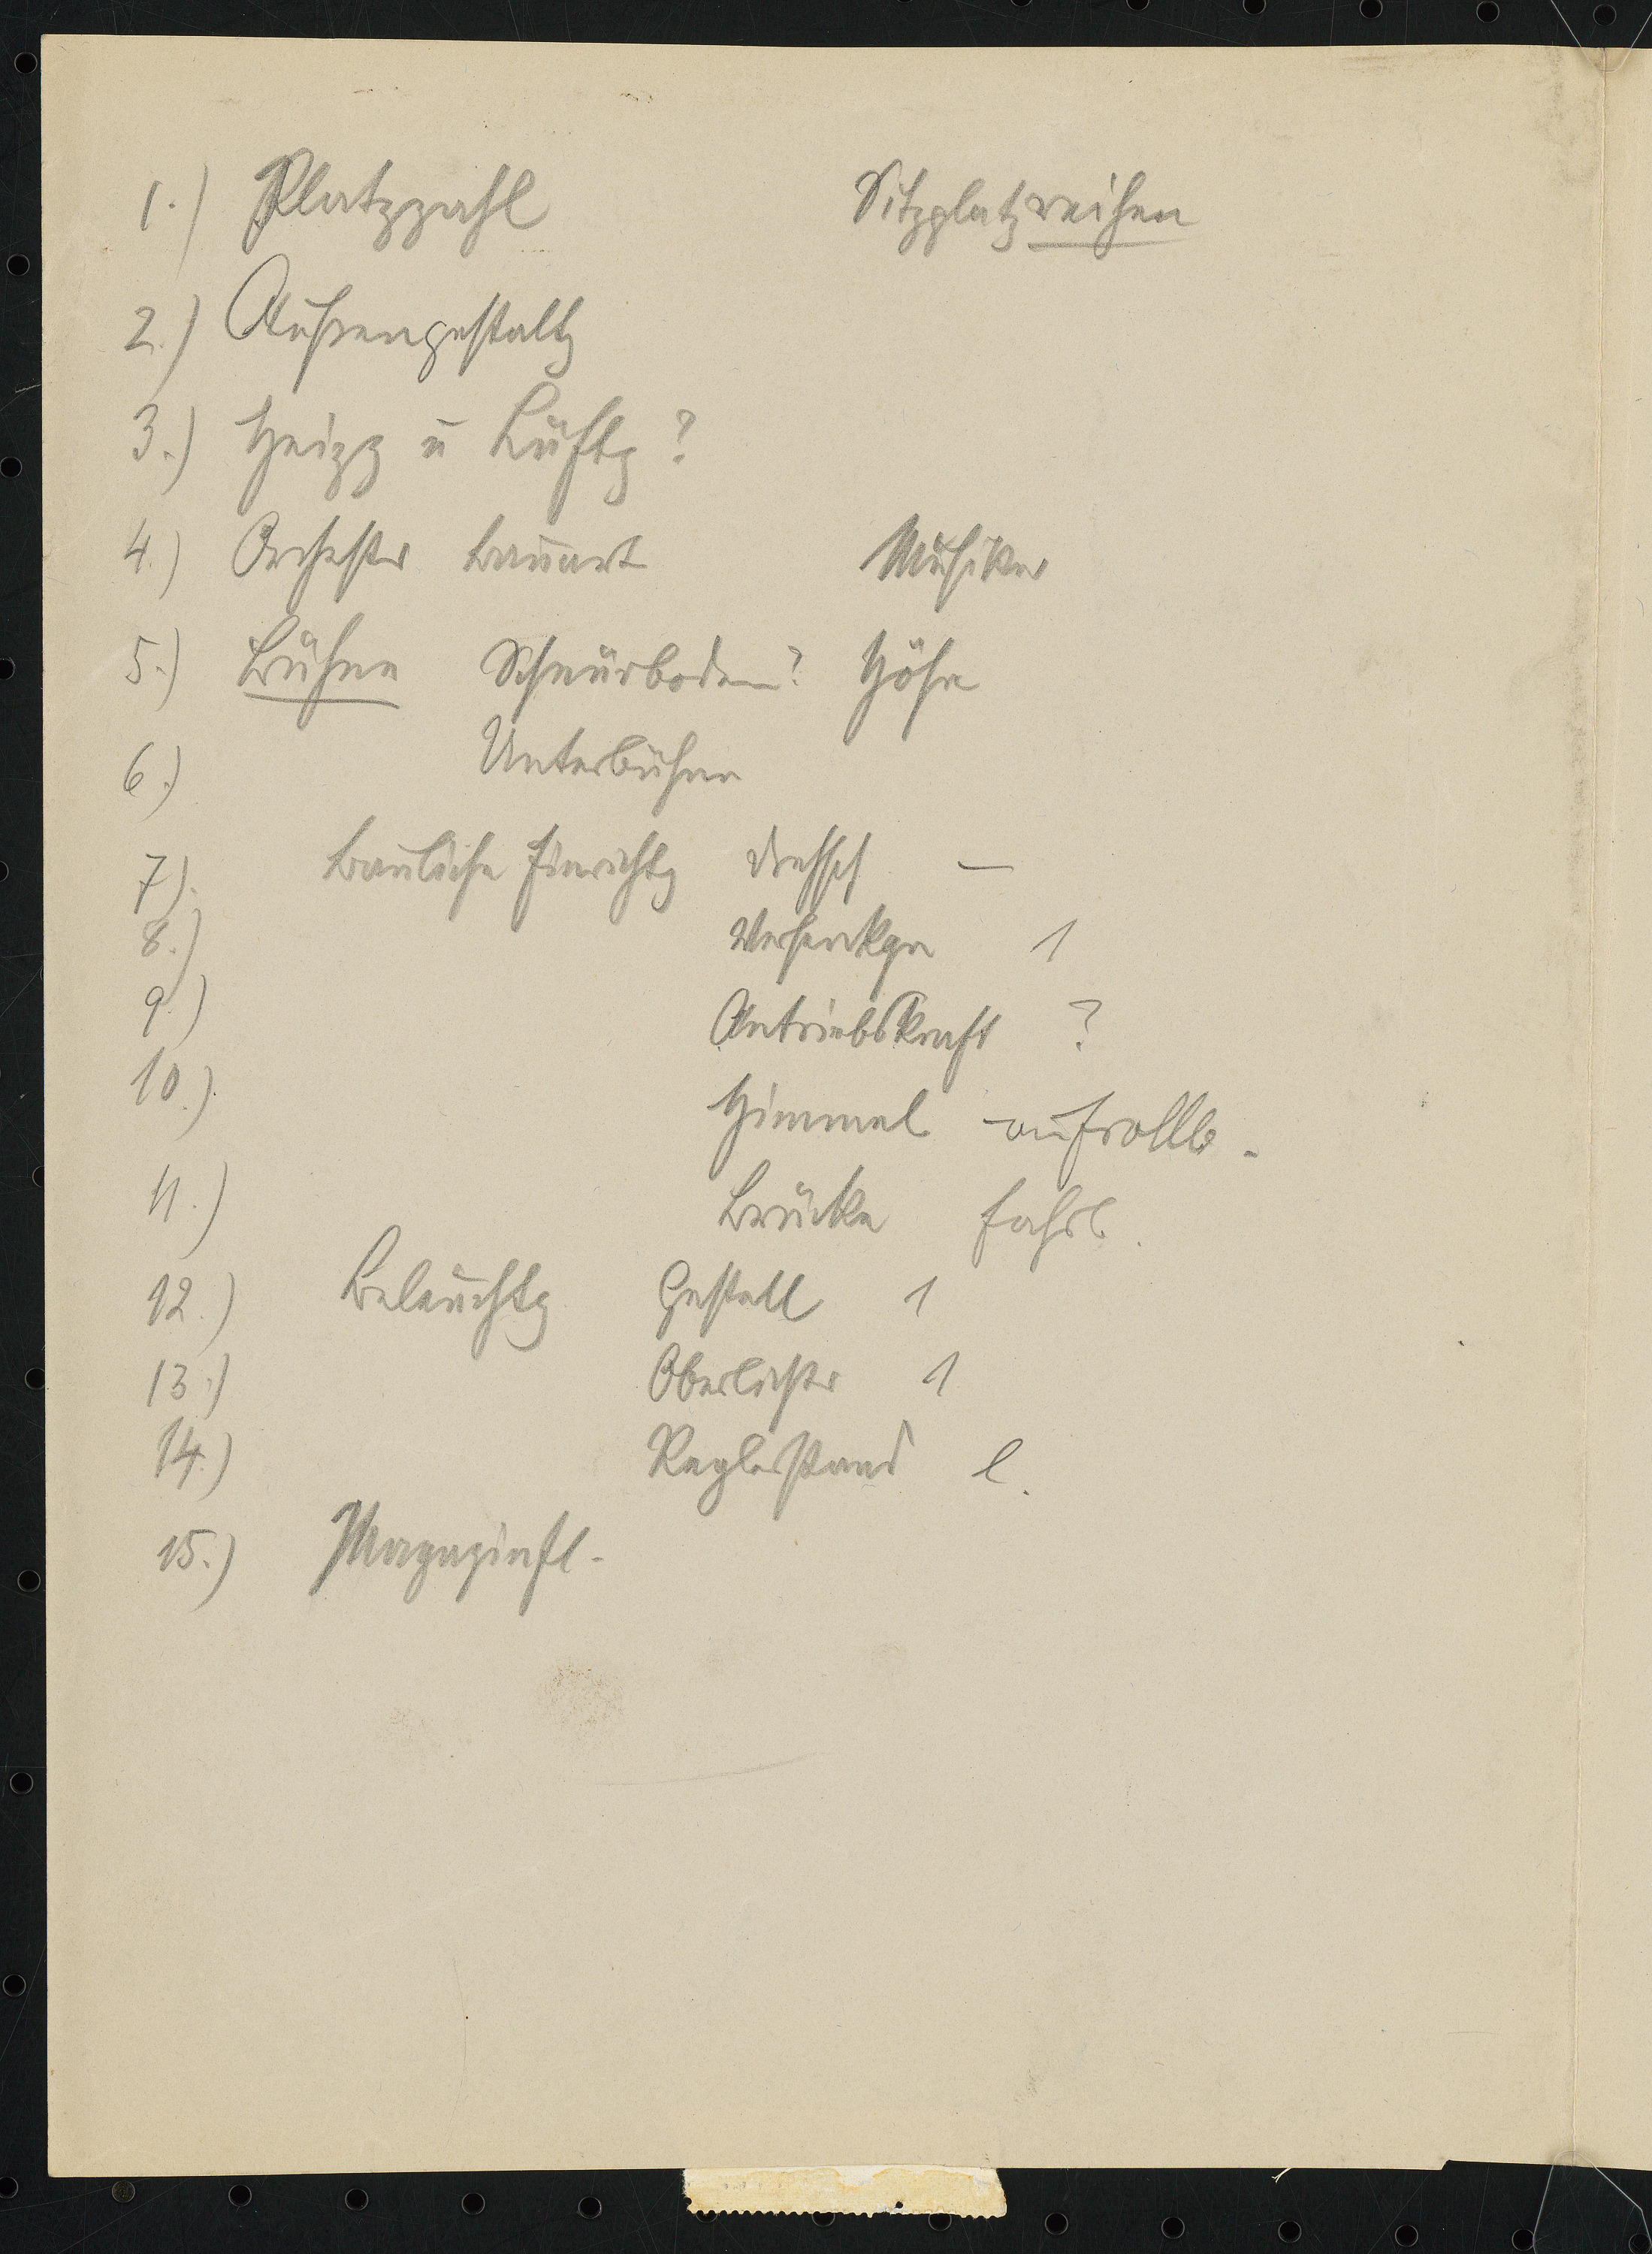 1.) Platzzahl Sitzplatzreihen
2.) Außengestaltg
3.) Heizg u Lüftg ?
4.) Orchester Bauart Musiker
5.) Bühne Schnürboden? Höhe
6.) Unterbühne
7.) Bauliche Einrichtg Drehsch —
8.) Versenkgn 1
9.) Antriebskraft ?
10.) Himmel aufrollb.
11.) Brücke fahrb.
12.) Beleuchtg Gestell 1
13.) Oberlichter 1
14.) Reglerstand l.
15.) Magazinfl.